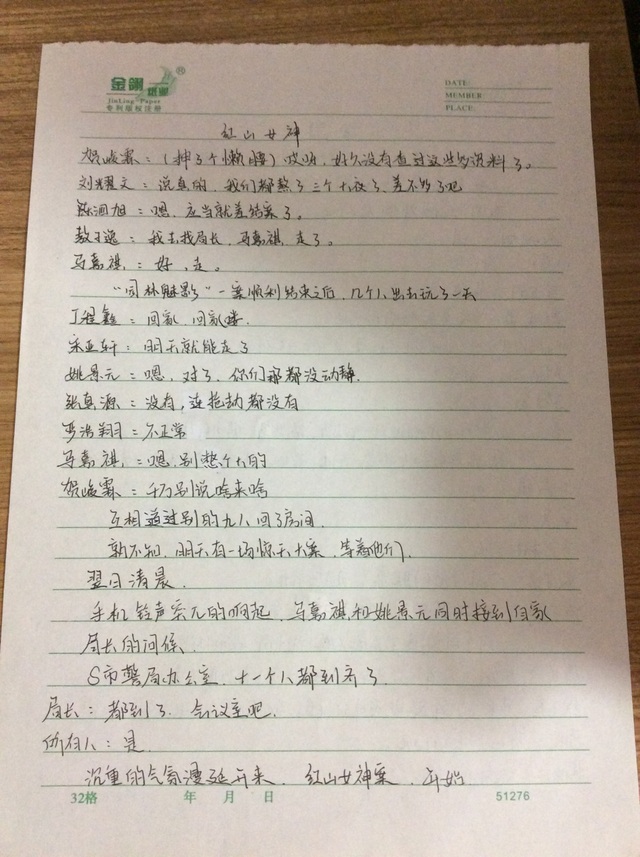 金翎 纸业 ®
JinLing Paper
专利版权注册
DATE:
MEMBER
PLACE:
红山女神
贺峻霖：（抻了个懒腰）哎呀，好久没有查过这些资料了。
刘耀文：说真的，我们都熬了三个大夜了，差不多了吧
陈泗旭：嗯，应当就差结案了。
敖子逸：我去找局长，马嘉祺，走了。
马嘉祺：好，走。
“园林魅影”一案顺利结束之后，几个人出去玩了一天
丁程鑫：回家，回家喽.
宋亚轩：明天就能走了
姚景元：嗯，对了，你们那都没动静.
张真源：没有，连抢劫都没有
严浩翔：不正常
马嘉祺：嗯，别整个大的
贺峻霖：千万别说啥来啥
互相道过别的九人回了房间.
孰不知，明天有一场惊天大案，等着他们.
翌日清晨.
手机铃声突兀的响起，马嘉祺和姚景元同时接到自家
局长的问候.
S市警局办公室，十一个人都到齐了.
局长：都到了，会议室吧.
所有人：是.
沉重的气氛漫延开来，红山女神案，开始.
32格
年 月 日
51276